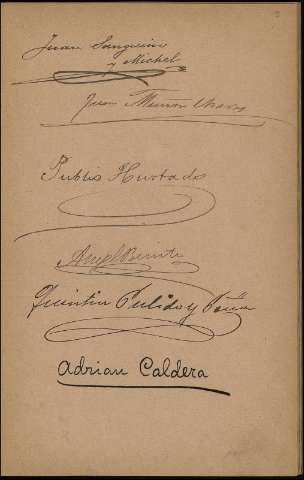 Juan Sanguino
y Michel
Juan Muñoz Chaves
Publio Hurtado
Angel Benito
Quintin Pulido y
Adrian Caldera